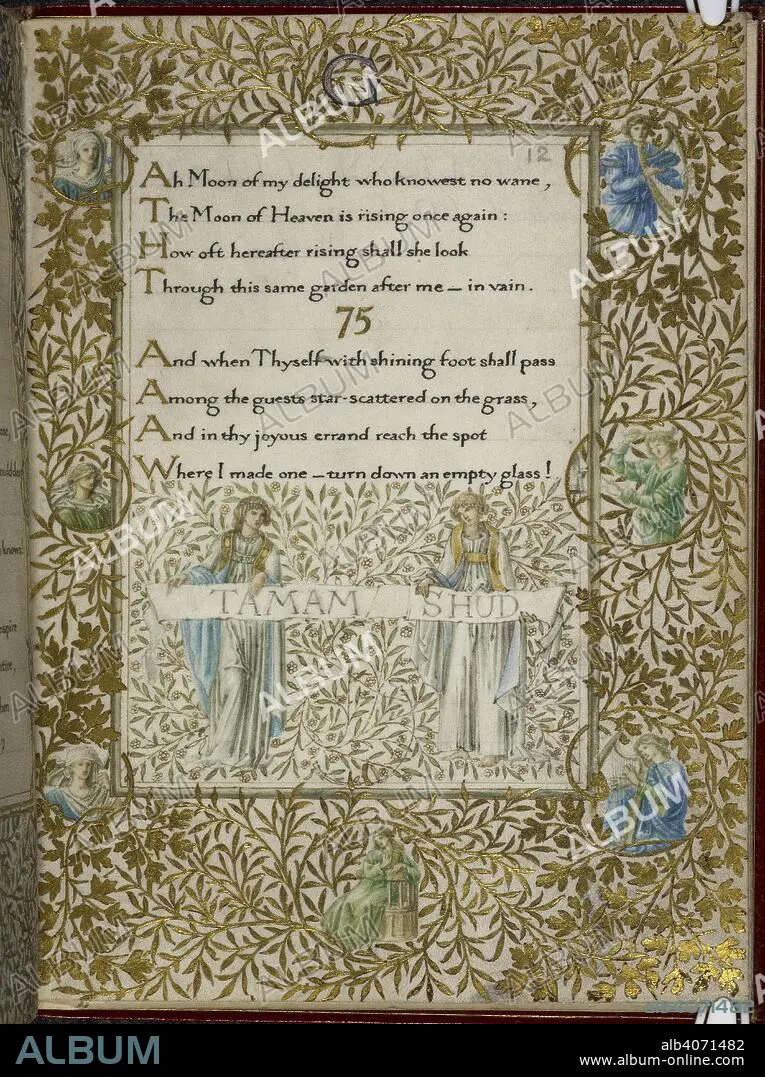 12
Ah Moon of my delight who knowest no wane,
The Moon of Heaven is rising once again:
How oft hereafter rising shall she look
Through this same garden after me — in vain.
75
And when Thyself with shining foot shall pass
Among the guests star-scattered on the grass,
And in thy joyous errand reach the spot
Where I made one — turn down an empty glass!
TAMAM SHUD
ALBUM
alb4071482
www.album-online.com